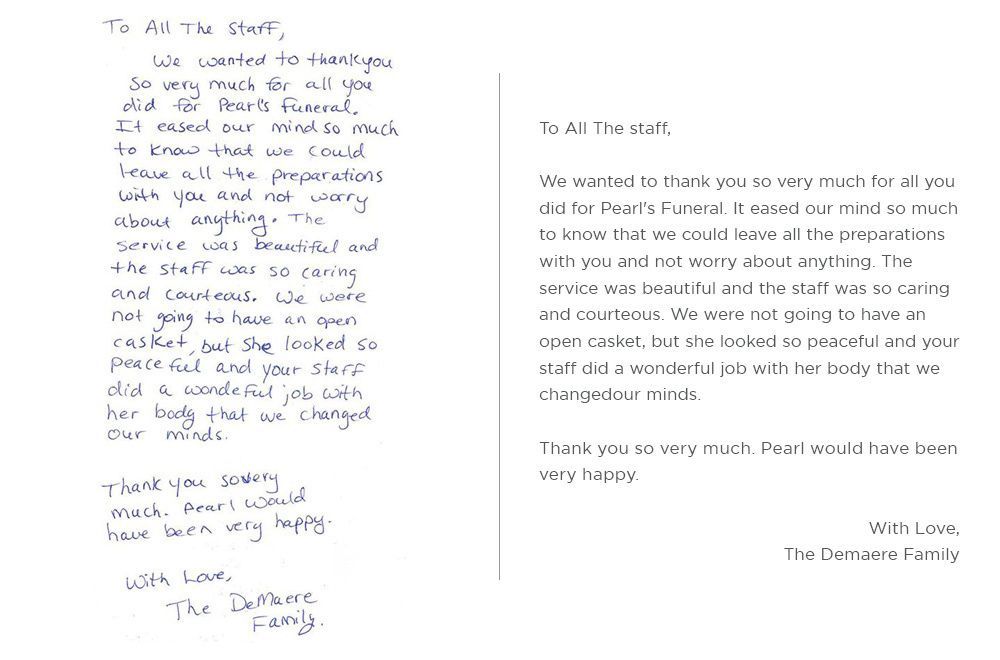 To All The Staff,
We wanted to thankyou
So very much for all you
did for Pearl's Funeral.
It eased our mind so much
to know that we could
leave all the preparations
with you and not worry
about anything. The
service was beautiful and
the staff was so caring
and courteous. We were
not going to have an open
casket, but she looked so
peaceful and your staff
did a wondeful job with
her body that we changed
our minds.
Thank you so very
much. Pearl would
have been very happy.
With Love,
The DeMaere
Family.
To All The staff,
We wanted to thank you so very much for all you
did for Pearl's Funeral. It eased our mind so much
to know that we could leave all the preparations
with you and not worry about anything. The
service was beautiful and the staff was so caring
and courteous. We were not going to have an
open casket, but she looked so peaceful and your
staff did a wonderful job with her body that we
changedour minds.
Thank you so very much. Pearl would have been
very happy.
With Love,
The Demaere Family